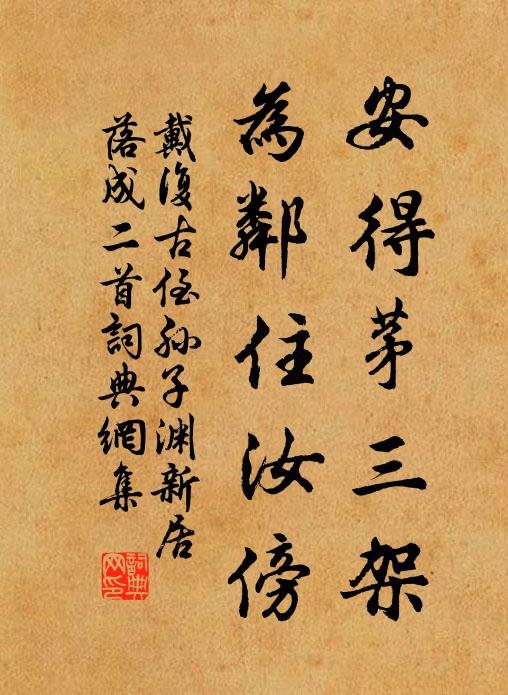 安得茅三架
為鄰住汝傍
戴復古侄孫子淵新居
落成二首詞典網集
詞典網印